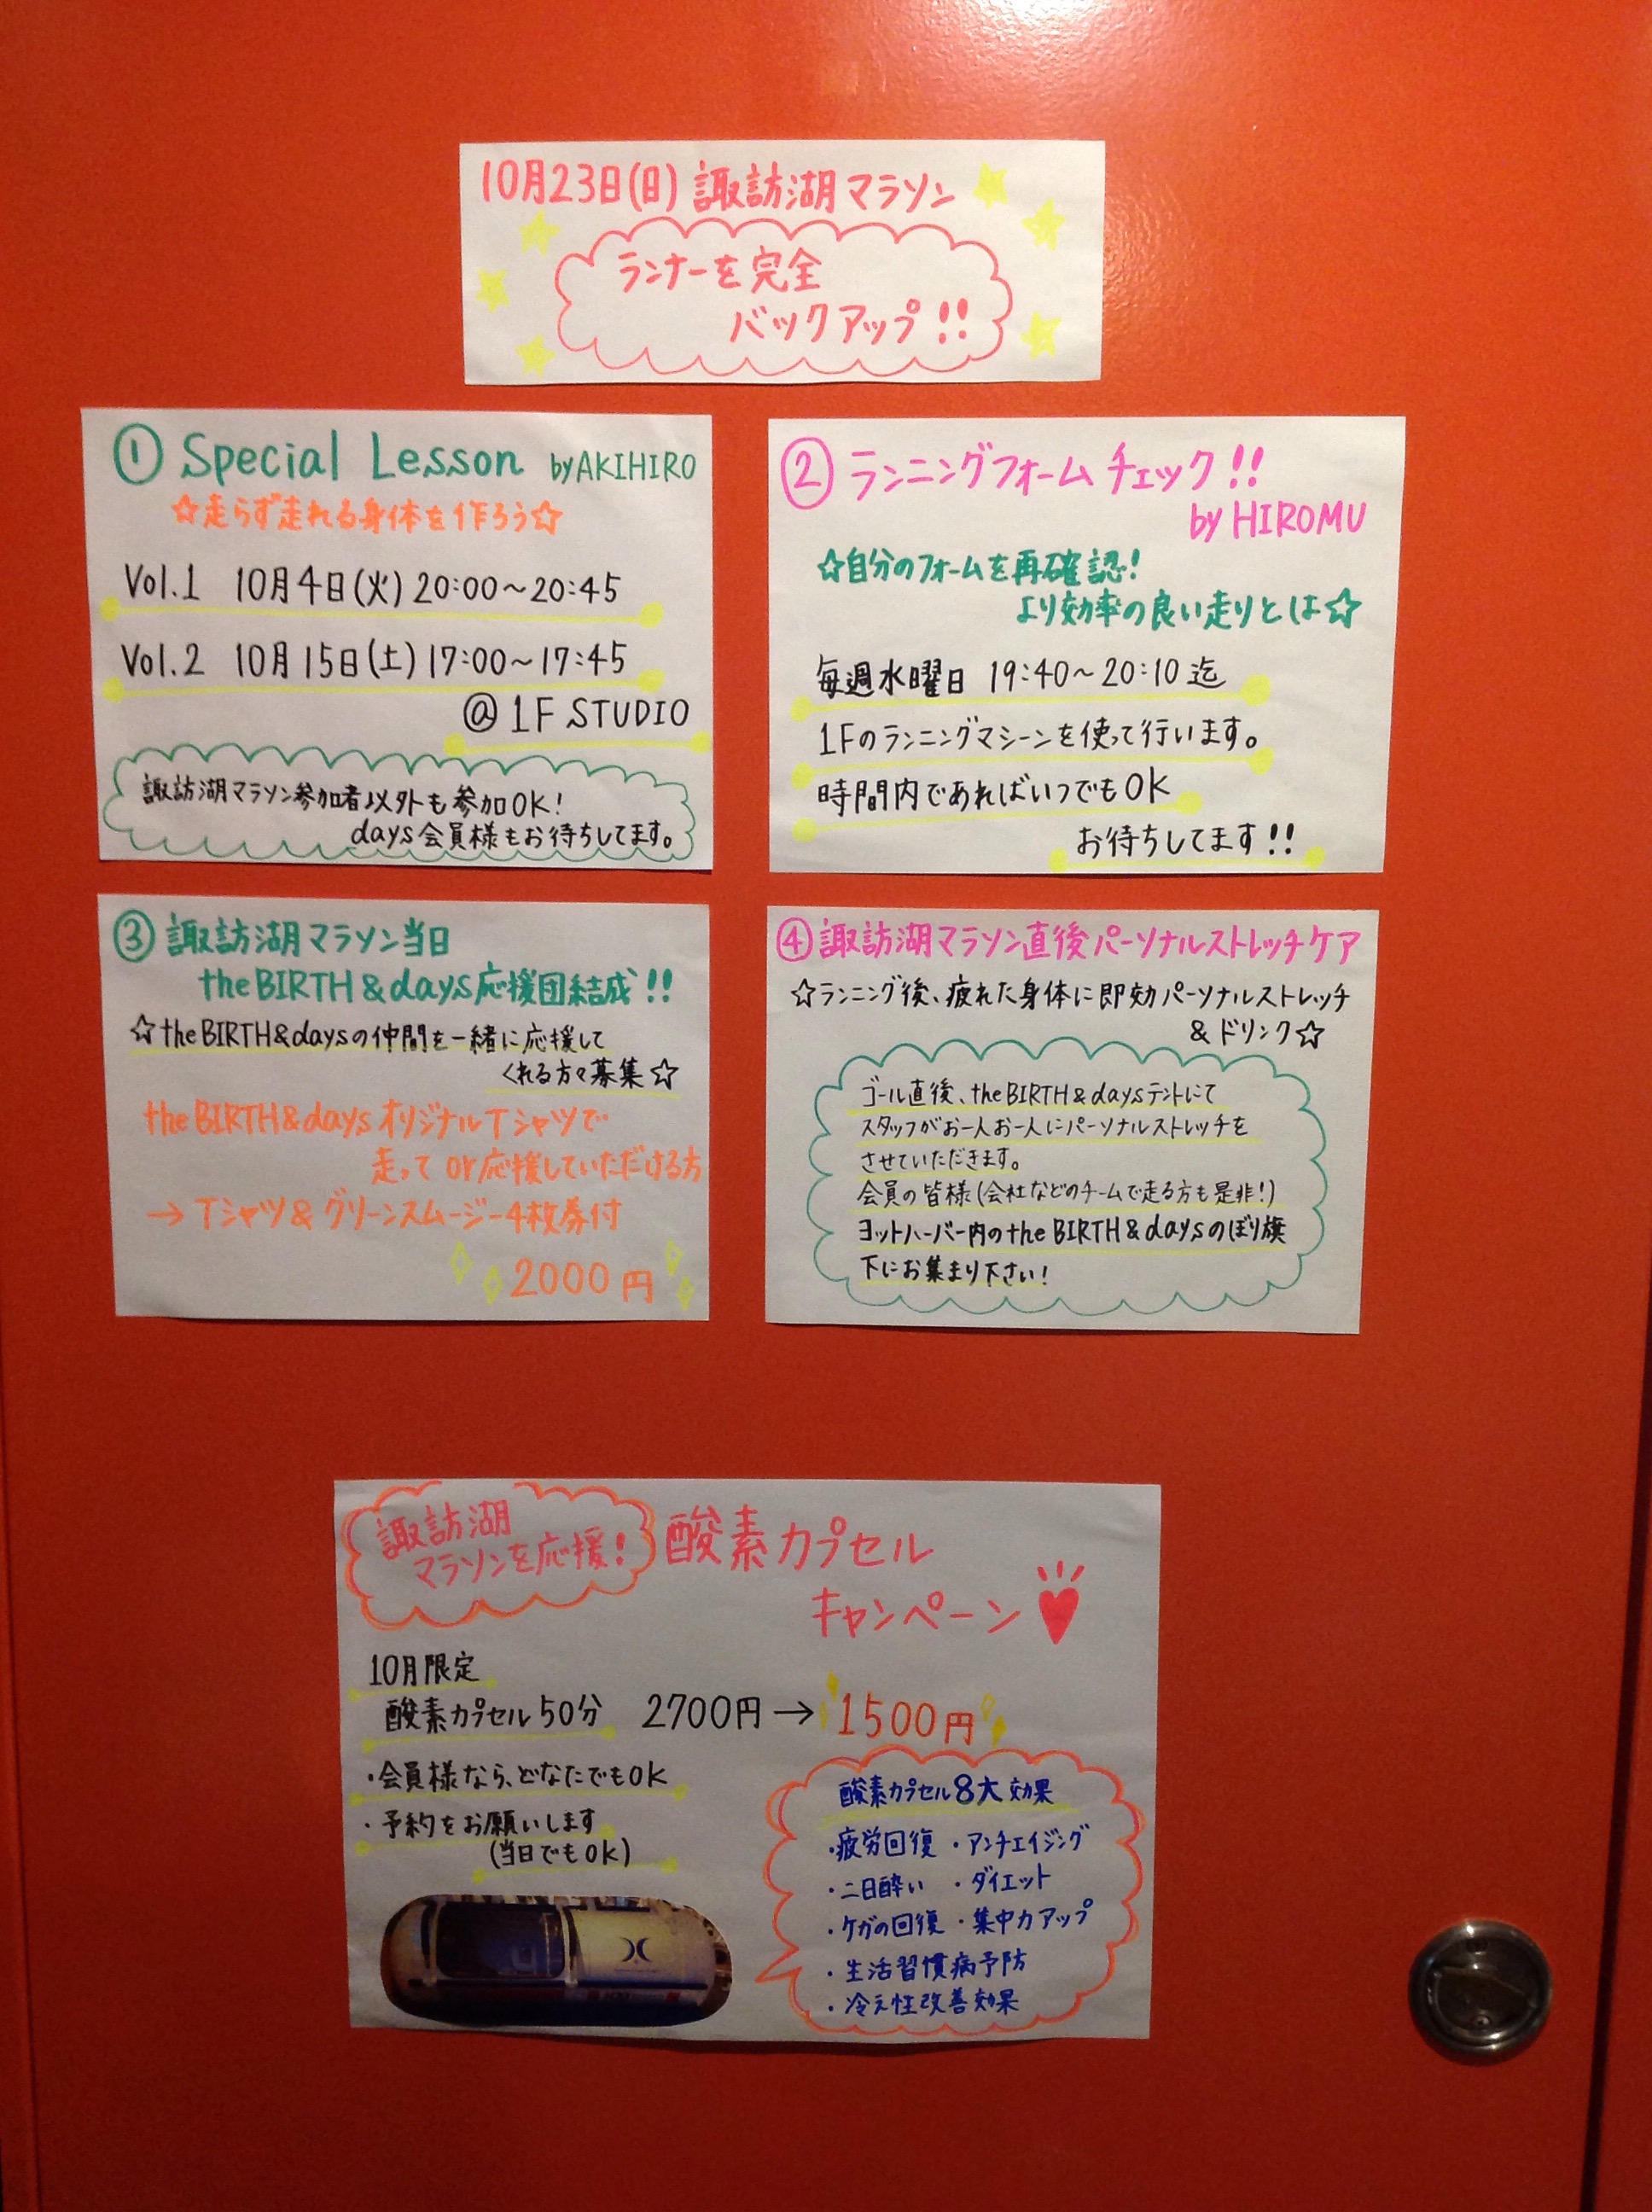 10月23日(日) 諏訪湖マラソン
ランナーを完全
バックアップ!!
① Special Lesson by AKIHIRO
☆走らず走れる身体を作ろう☆
Vol.1 10月4日(火) 20:00〜20:45
Vol.2 10月15日(土) 17:00〜17:45
@ 1F STUDIO
諏訪湖マラソン参加者以外も参加OK!
days会員様もお待ちしてます。
② ランニングフォームチェック!!
by HIROMU
☆自分のフォームを再確認!
より効率の良い走りとは☆
毎週水曜日 19:40〜20:10迄
1Fのランニングマシーンを使って行います。
時間内であればいつでもOK
お待ちしてます!!
③ 諏訪湖マラソン当日
the BIRTH & days 応援団結成!!
☆the BIRTH&daysの仲間を一緒に応援して
くれる方々募集☆
the BIRTH&days オリジナルTシャツで
走って or 応援していただける方
→ Tシャツ & グリーンスムージー4枚券付
2000円
④ 諏訪湖マラソン直後パーソナルストレッチケア
☆ランニング後、疲れた身体に即効パーソナルストレッチ
& ドリンク☆
ゴール直後、the BIRTH & daysテントにて
スタッフがお一人お一人にパーソナルストレッチを
させていただきます。
会員の皆様(会社などのチームで走る方も是非!)
ヨットハーバー内のthe BIRTH & daysのぼり旗
下にお集まり下さい!
諏訪湖
マラソンを応援!
酸素カプセル
キャンペーン
10月限定
酸素カプセル50分 2700円→1500円
・会員様なら、どなたでもOK
・予約をお願いします
(当日でもOK)
酸素カプセル8大効果
・疲労回復 ・アンチエイジング
・二日酔い ・ダイエット
・ケガの回復 ・集中力アップ
・生活習慣病予防
・冷え性改善効果